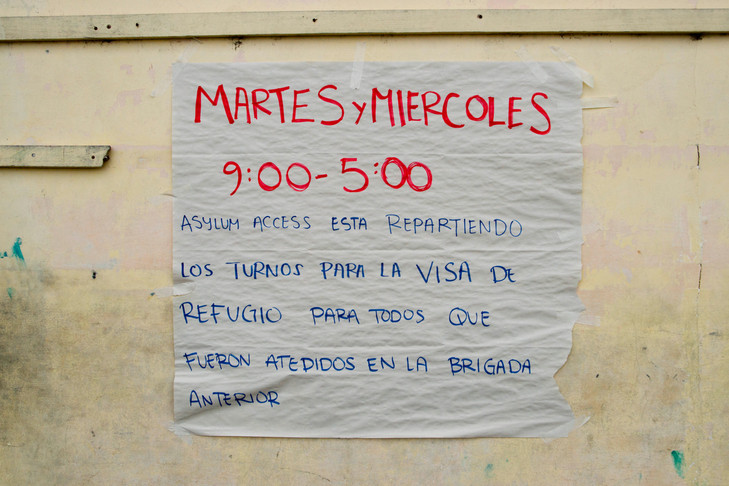 MARTES Y MIERCOLES
9:00-5:00
ASYLUM ACCESS ESTA REPARTIENDO
LOS TURNOS PARA LA VISA DE
REFUGIO PARA TODOS QUE
FUERON ATEDIDOS EN LA BRIGADA
ANTERIOR